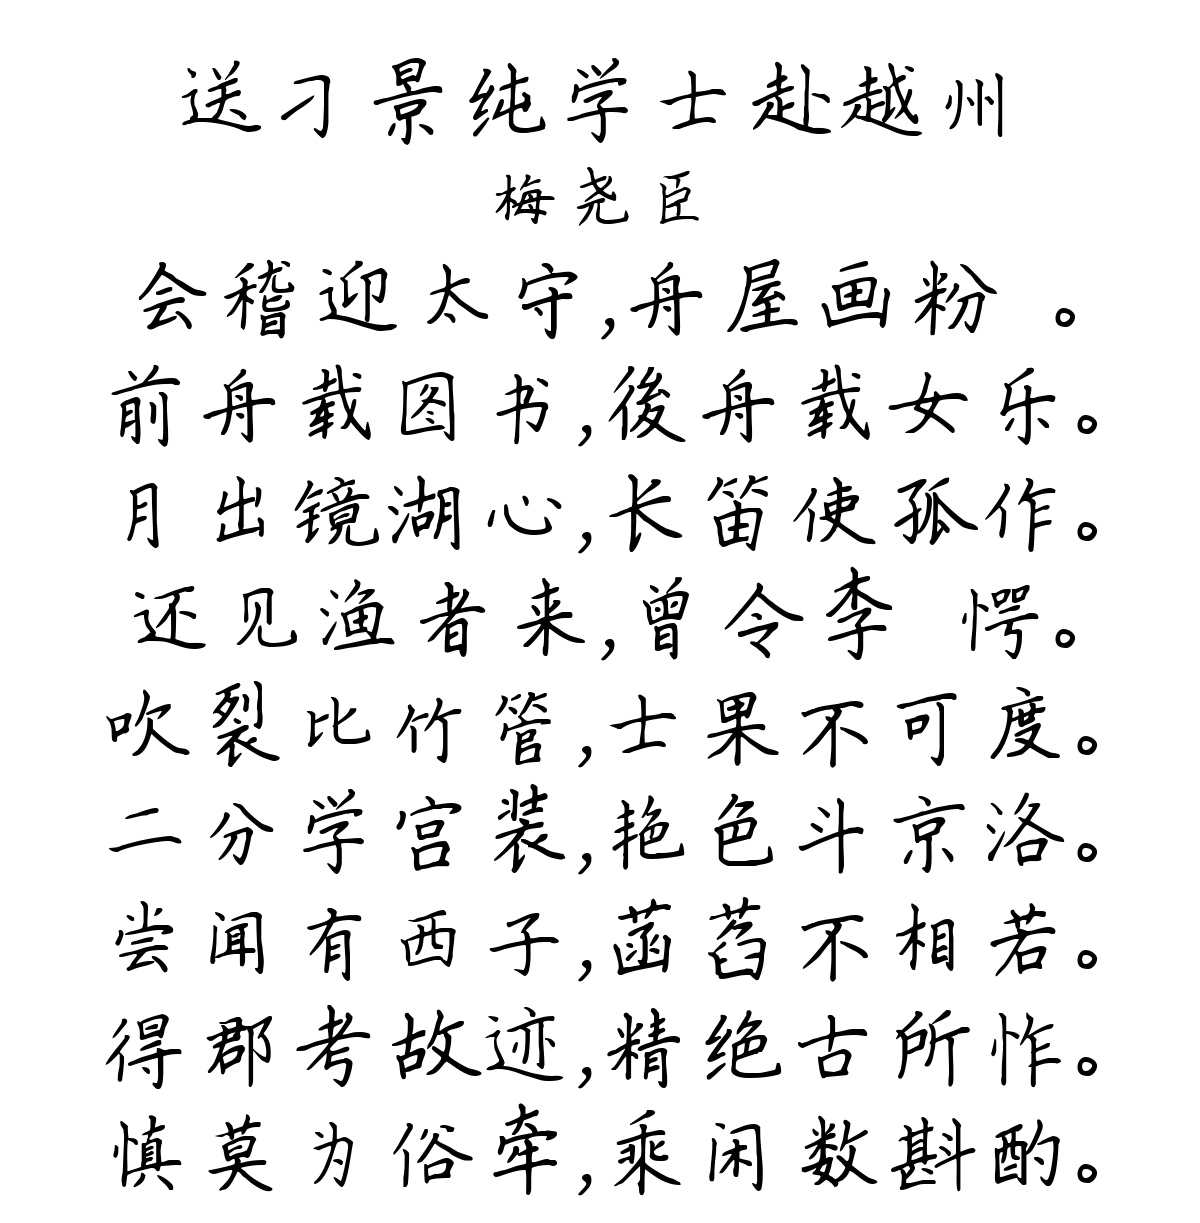 送刁景纯学士赴越州
梅尧臣
会稽迎太守,舟屋画粉 。
前舟载图书,後舟载女乐。
月出镜湖心,长笛使孤作。
还见渔者来,曾令李 愕。
吹裂比竹管,士果不可度。
二分学宫装,艳色斗京洛。
尝闻有西子,菡萏不相若。
得郡考故迹,精绝古所怍。
慎莫为俗牵,乘闲数斟酌。